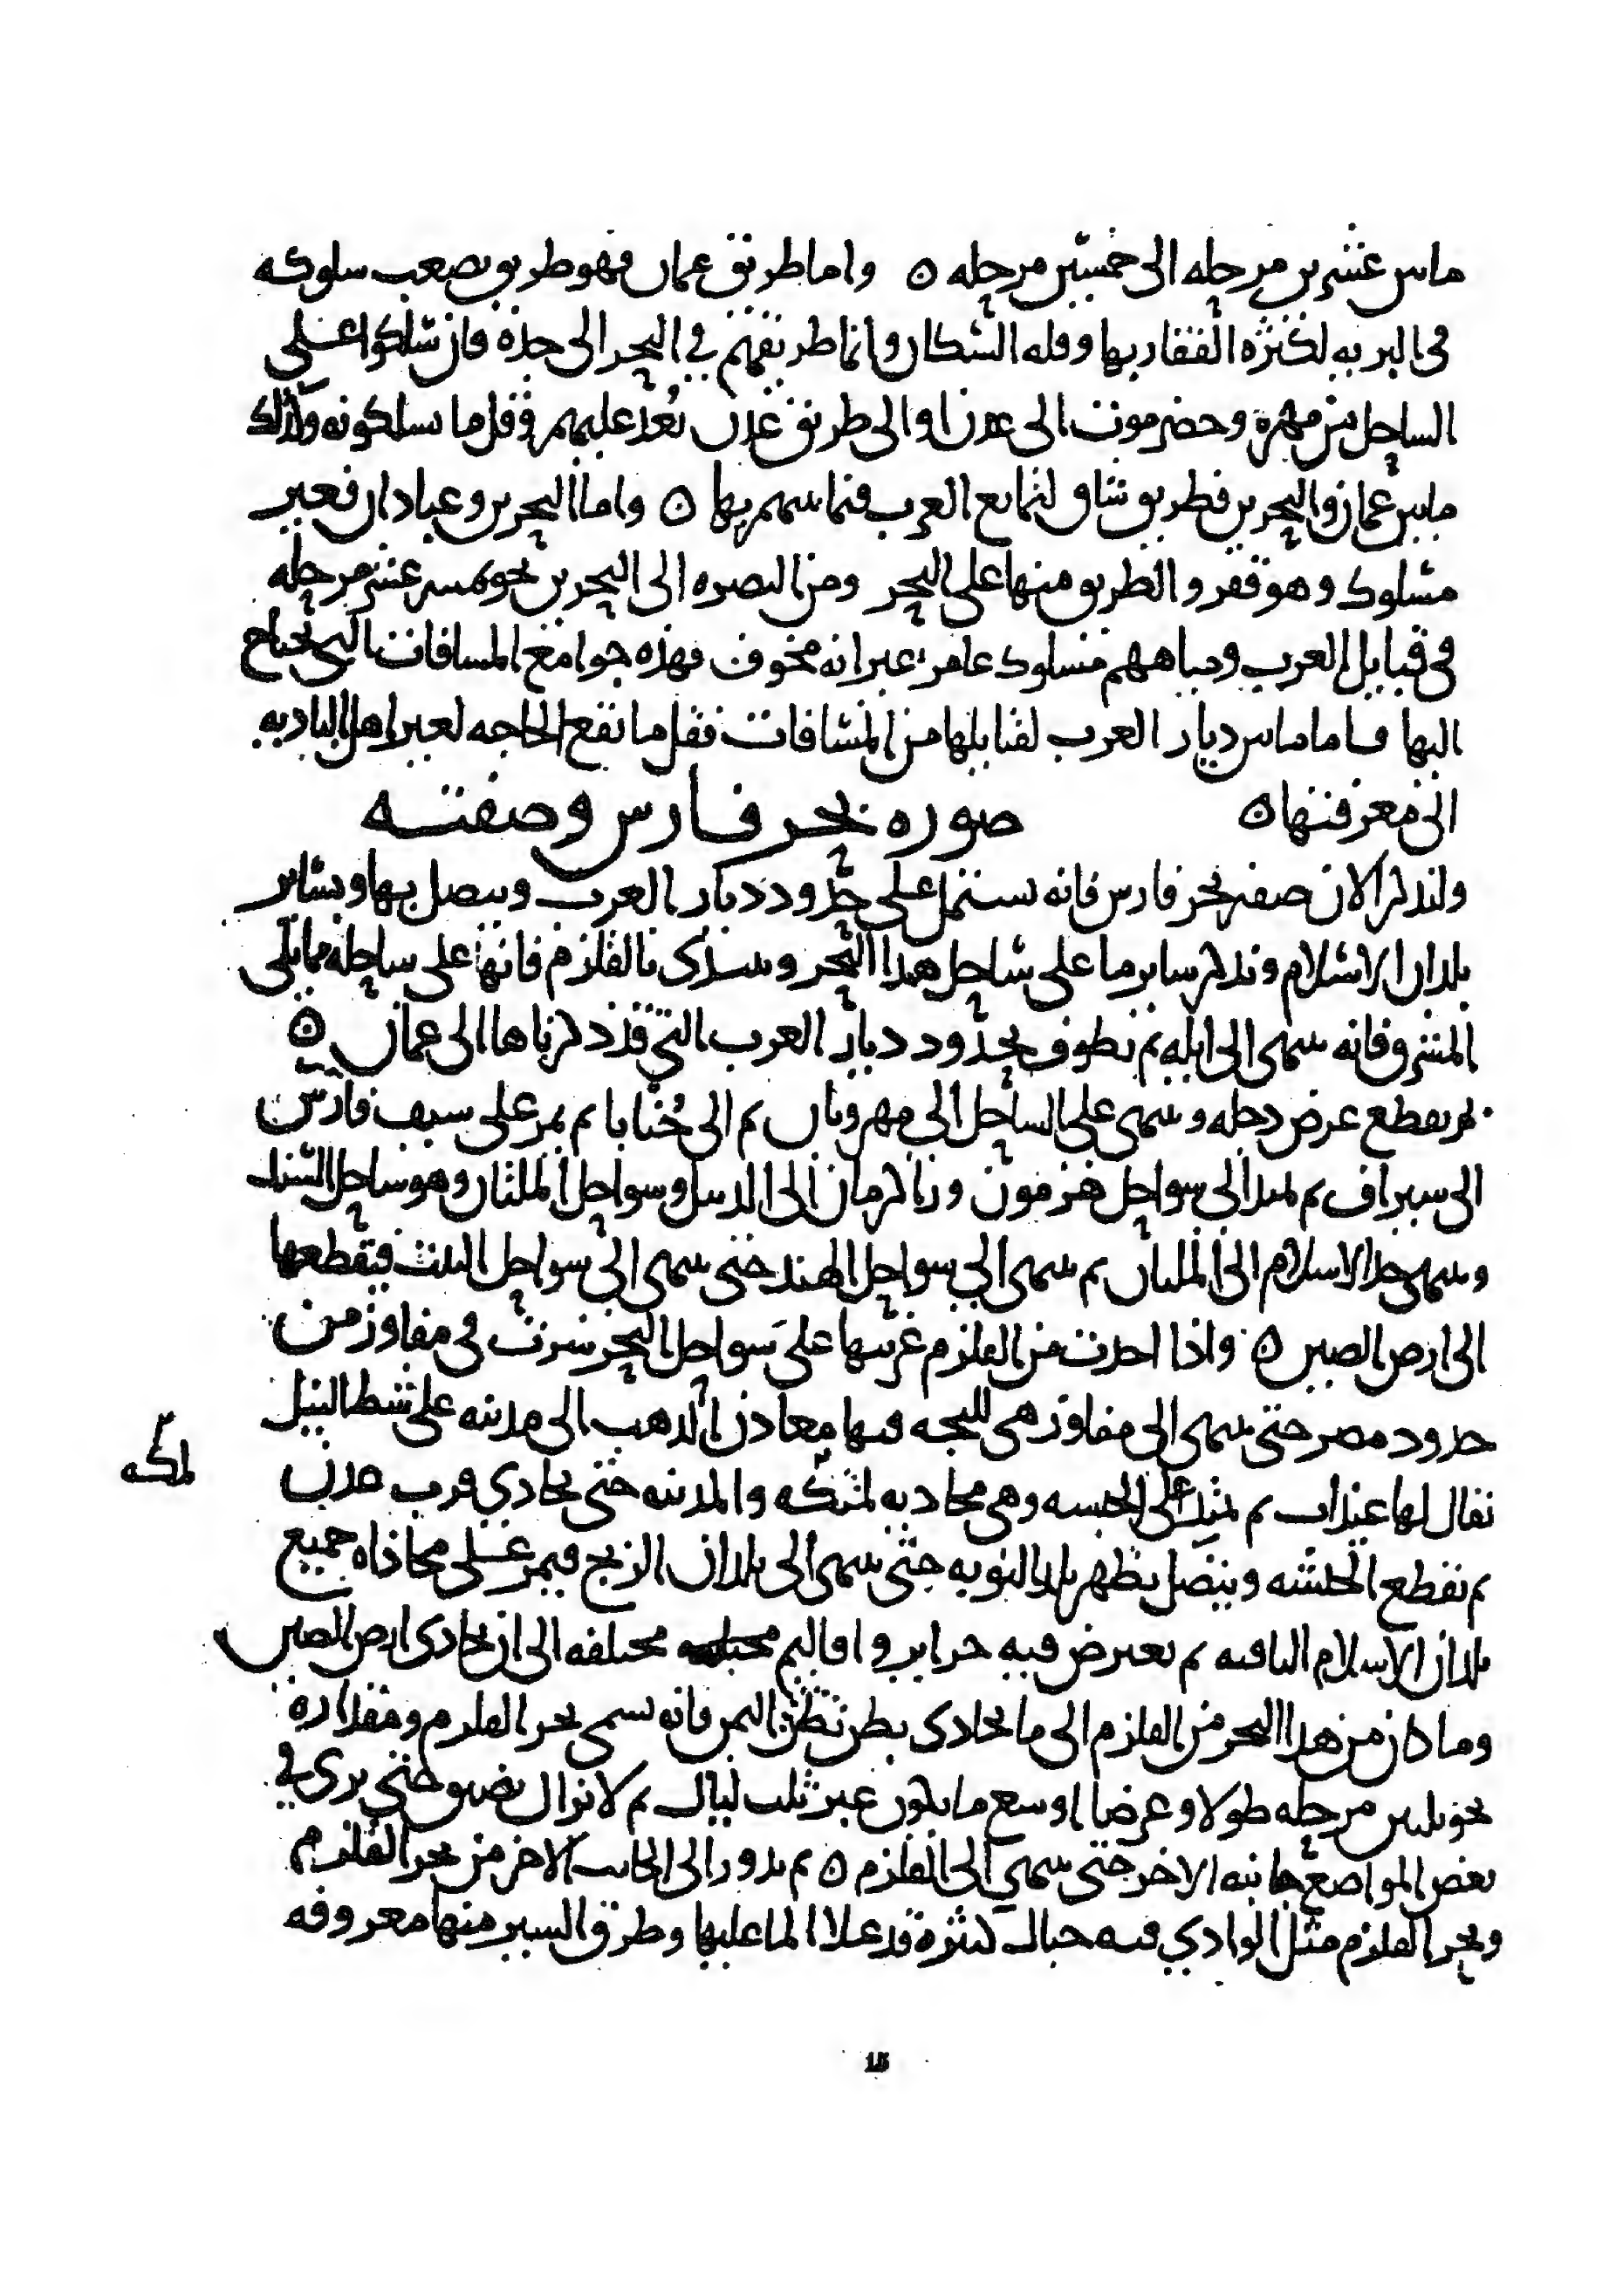 ما بين عشرين مرحله الى خمسين مرحله ه واما طريق عمان فهو طريق يصعب سلوكه
فى البريه لكثرة القفار بها وقله السكان وانما طريقهم في البحر الى جدة فان سلكوا على
الساحل من مهره وحضرموت الى عدن او الى طريق عدن بُعد عليهم وقل ما يسلكونه وكذلك
ما بين عمان والبحرين فطريق شاق لتمانع العرب فيما بينهم بها ه واما البحرين وعبادان فغير
مسلوك وهو قفر والطريق منها على البحر ومن البصره الى البحرين نحو خمسه عشر مرحله
فى قبايل العرب ومياههم مسلوك عامر غير انه مخوف فهذه جوامع المسافات التى يحتاج
اليها فاما ما بين ديار العرب لقبايلها من المسافات فقل ما تقع الحاجه لغير اهل الباديه
الى معرفتها ه صوره بحر فارس وصفته
ولنذكر الان صفه بحر فارس فانه يشتمل على حدود ديار العرب ويتصل بها وبساير
بلدان الاسلام ونذكر ساير ما على ساحل هذا البحر ونبتدى بالقلزم فانها على ساحله مما يلى
المشرق فانه ينتهى الى ايله ثم يطوف بحدود ديار العرب التى قد ذكرناها الى عمان ه
ثم يقطع عرض دجله وينتهى على الساحل الى مهروبان ثم الى جُنّابا ثم يمر على سيف فارس
الى سيراف ثم يمتد الى سواحل هرموز ورا كرمان الى الديبل وسواحل الملتان وهو ساحل السند
وينتهى حد الاسلام الى الملتان ثم ينتهى الى سواحل الهند حتى ينتهى الى سواحل التبت فيقطعها
الى ارض الصين ه واذا اخذت من القلزم غربيها على سواحل البحر سرت فى مفاوز من
حدود مصر حتى ينتهى الى مفاوز هى للبجه فيها معادن الذهب الى مدينه على شط النيل
يقال لها عيذاب ثم يمتد على الحبشه وهى محاذيه لمكه والمدينه حتى يحاذي قرب عدن
لمكه
ثم يقطع الحبشه ويتصل بظهر بلد النوبه حتى ينتهى الى بلدان الزنج فيمر على محاذاه جميع
بلدان الاسلام الباقيه ثم يعترض فيه جزاير واقاليم مختلفه الى ان يحاذى ارض الصين
وما كان من هذا البحر من القلزم الى ما يحاذى بطن اليمن فانه يسمى بحر القلزم ومقداره
نحو ثلثين مرحله طولا وعرضا اوسع ما يكون عبر ثلث ليال ثم لا يزال يضيق حتى يرى في
بعض المواضع جانبه الاخر حتى ينتهي الى القلزم ه ثم يدور الى الجانب الاخر من بحر القلزم
وبحر القلزم مثل الوادي فيه جبال كثيرة قد علا الما عليها وطرق السير منها معروفه
15